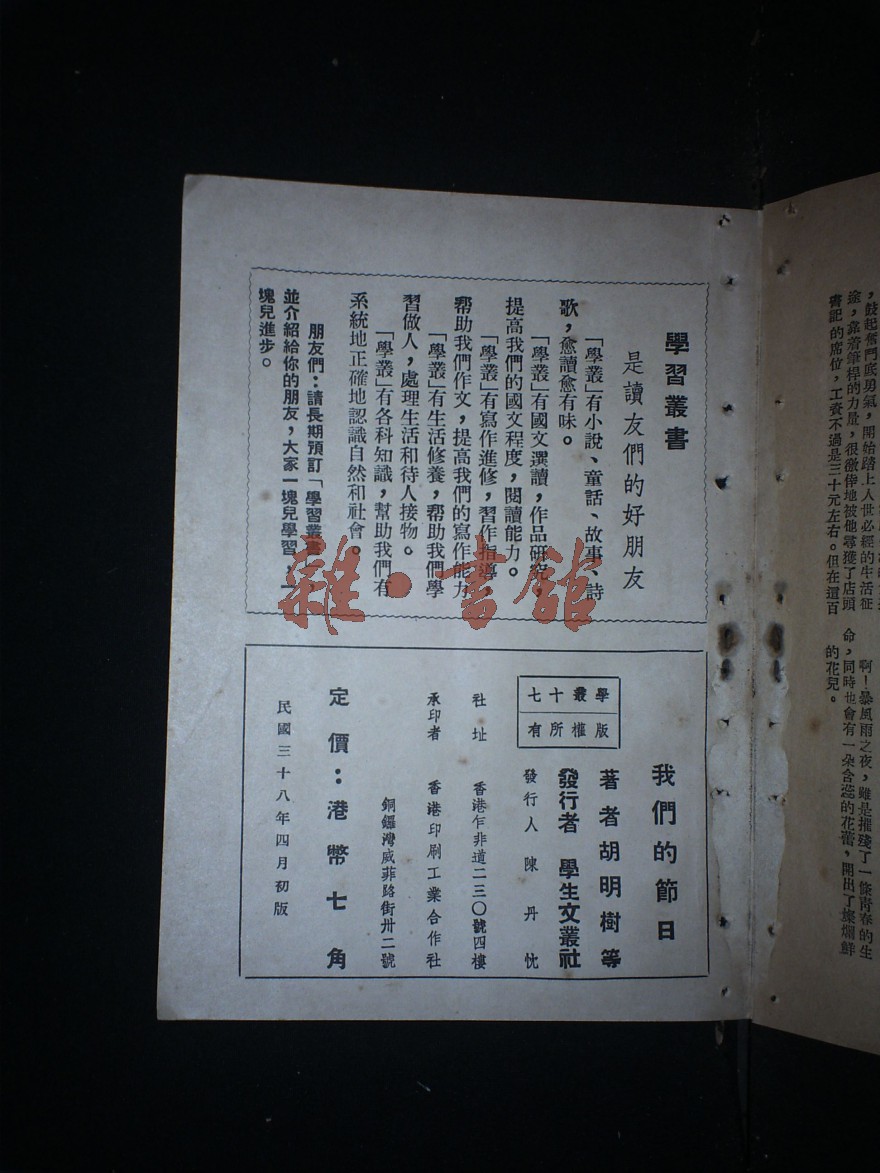 學習叢書
是讀友們的好朋友
「學叢」有小說、童話、故事、詩
歌，愈讀愈有味。
「學叢」有國文選讀，作品研究，
提高我們的國文程度，閱讀能力。
「學叢」有寫作進修，習作指導，
帮助我們作文，提高我們的寫作能力
「學叢」有生活修養，帮助我們學
習做人，處理生活和待人接物。
「學叢」有各科知識，幫助我們有
系統地正確地認識自然和社會。
朋友們：請長期預訂「學習叢書」，
並介紹給你的朋友，大家一塊兒學習，一
塊兒進步。
我們的節日
學叢十七
版權所有
著者胡明樹等
發行者 學生文叢社
發行人 陳丹忱
社址 香港乍非道二三〇號四樓
承印者 香港印刷工業合作社
銅鑼灣威菲路街卅二號
定價：港幣七角
民國三十八年四月初版
，鼓起奮鬥底勇氣，開始踏上人世必經的生活征
途，靠着筆桿的力量，很徼倖地被他尋獲了店頭
書記的席位，工資不過是三十元左右。但在這百
啊！暴風雨之夜，雖是摧殘了一條靑春的生
命，同時也會有一朵含蕊的花蕾，開出了燦爛鮮
的花兒。
雜·書館